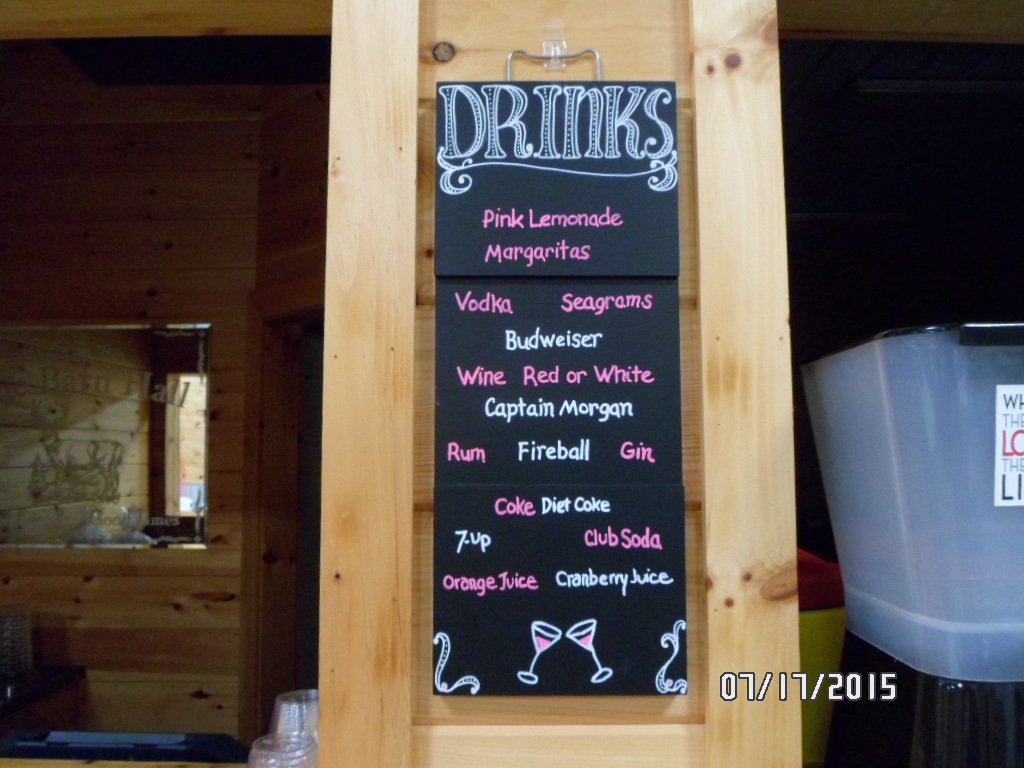 DRINKS
Pink Lemonade
Margaritas
Vodka Seagrams
Budweiser
Wine Red or White
Captain Morgan
Rum Fireball Gin
Coke Diet Coke
7-up Club Soda
Orange Juice Cranberry Juice
Barn Hall
WH
THE
LO
THE
LI
07/17/2015